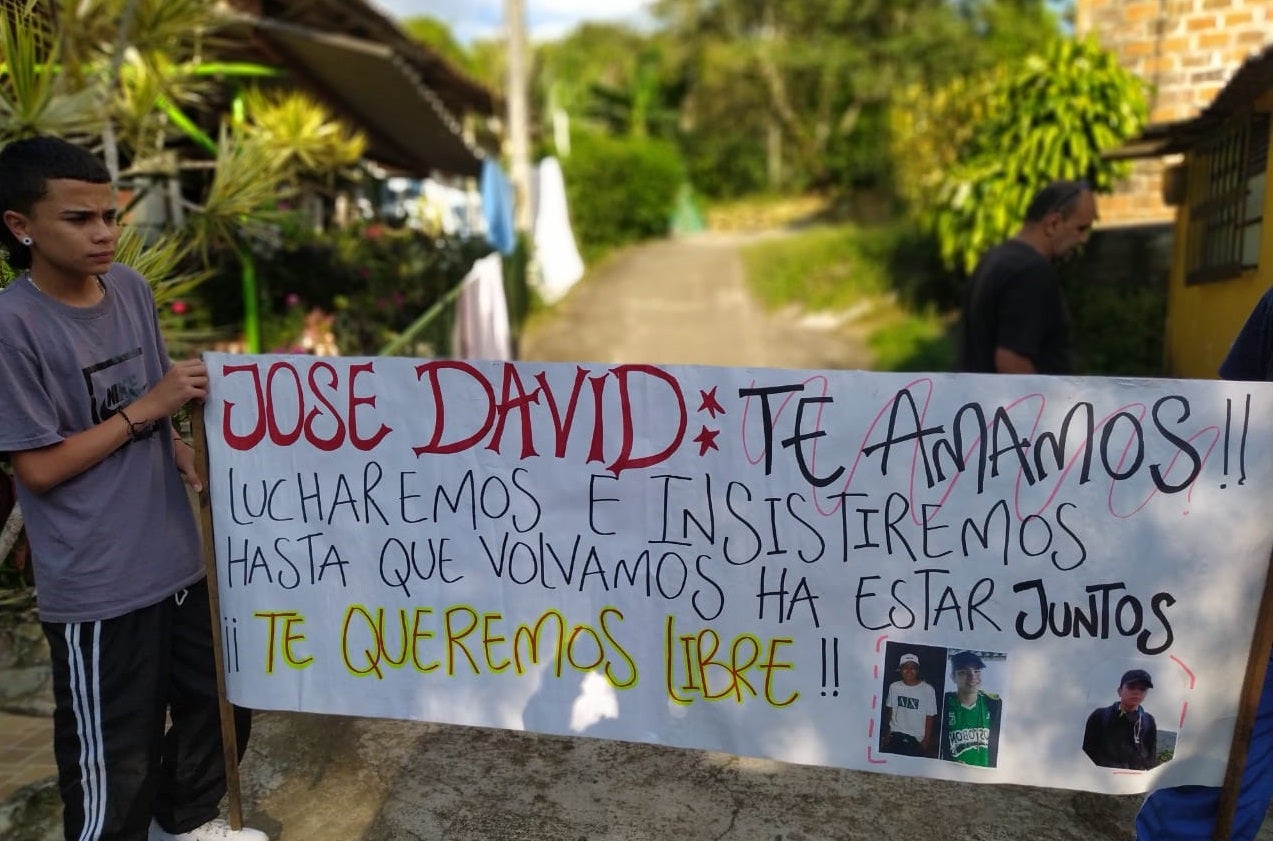 JOSE DAVID: TE AMAMOS!!
LUCHAREMOS E INSISTIREMOS
HASTA QUE VOLVAMOS HA ESTAR JUNTOS
¡¡ TE QUEREMOS LIBRE !!
A|X